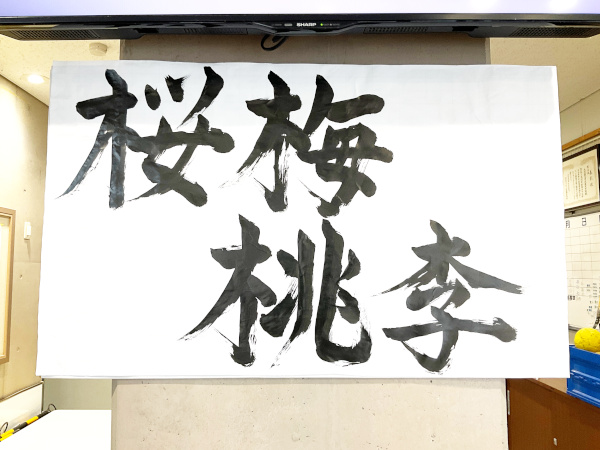 SHARP
桜梅
桃李